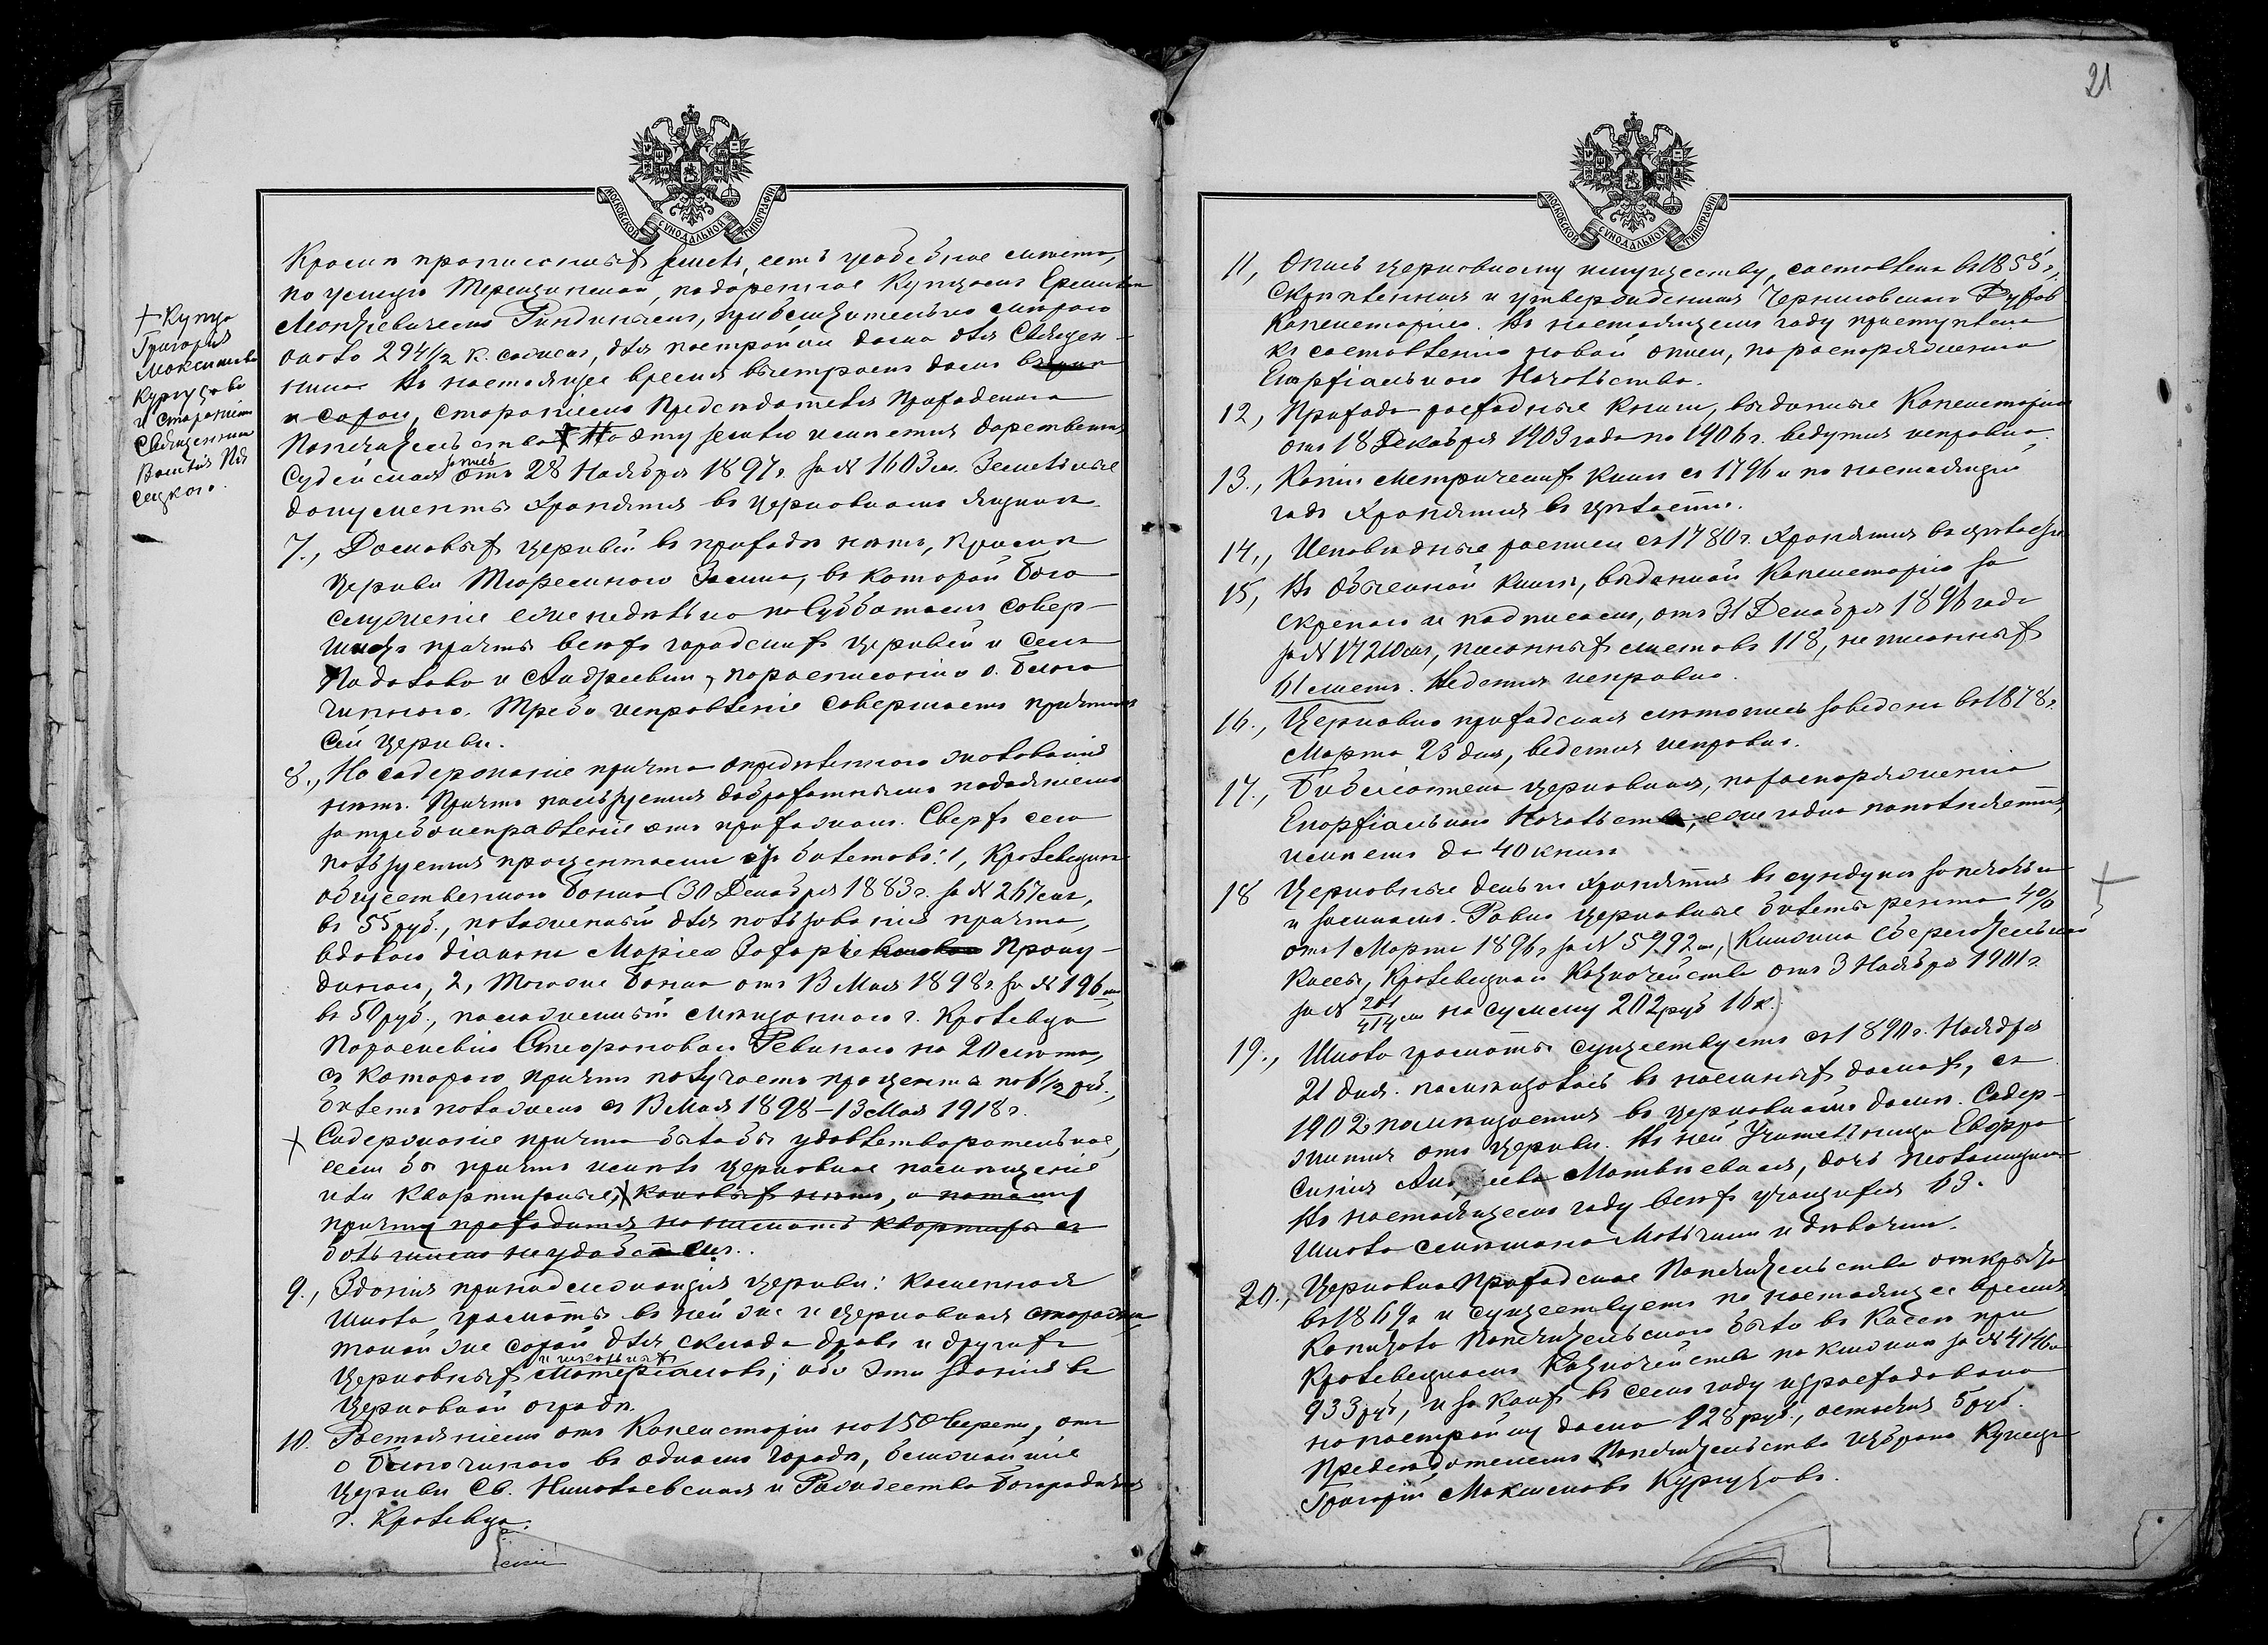 МОСКОВСКОЙ СѴНОДАЛЬНОЙ ТИПОГРАФІИ
Кромѣ прописныхъ земель, есть усадебное мѣсто,
по улицѣ Терещинской, подаренное Купцомъ Еремѣемъ
Моисѣевичемъ Рындинымъ, приблизительно мѣрою
около 294½ к. сажень, для постройки дома для Священ-
ника. Въ настоящее время выстроенъ домъ
и сарай, стараніемъ Предсѣдателя Приходскаго
Попечительства + На эту землю имѣется дарственная
Судейская запись отъ 28 Ноября 1897 г. за № 1603 м. Земельные
документы хранятся въ церковномъ ящикѣ.
+ Купца
Григорія
Максимова
Кургузова
и стараніемъ
Священника
Василія
7., Домовыхъ церквей въ приходѣ нѣтъ, кромѣ
церкви Тюремнаго Замка, въ которой Бого
служеніе еженедѣльно по Субботамъ совер-
шаютъ причты всѣхъ городскихъ церквей и селъ
Подолова и Андреевки, по росписанію о. Благо
чиннаго. Требо исправленіе совершаетъ причтъ
сей церкви.
8., На содержаніе причта опредѣленнаго жалованія
нѣтъ. Причтъ пользуется доброхотнымъ подаяніемъ
за требоисправленіе отъ прихожанъ. Сверхъ сего
пользуется процентами съ билетовъ: 1, Кролевецкаго
общественнаго Банка (30 Декабря 1883 г. за № 267 мъ,
въ 55 руб., положенный для пользованія причта,
вдовою діакона Маріею Захаріевою
2, Того же Банка отъ 13 Мая 1898 г. за № 196 мъ
въ 50 руб., положенный мѣщанкою г. Кролевца
Параскевіею Стефановою Ревиною на 20 лѣтъ,
съ котораго причтъ получаетъ процента по 6½ руб.,
билетъ положенъ съ 13 Мая 1898 – 13 Мая 1918 г.
+ Содержаніе причта было бы удовлетворительное,
если бы причтъ имѣлъ церковное помѣщеніе
или квартирные, каковыхъ нѣтъ, а потому
причту приходится нанимать квартиры съ
большими неудобствами.
9., Зданія принадлежащія церкви: каменная
школа грамоты въ ней же и церковная сторожка
такой же сарай для склада дровъ и другихъ
церковныхъ и школьныхъ матеріаловъ; оба эти зданія въ
церковной оградѣ.
10. Разстояніемъ отъ Консисторіи на 150 верстъ, отъ
о Благочиннаго въ одномъ городѣ, ближайшіе
церкви Св. Николаевская и Рождества Богородичная
г. Кролевца.
21
МОСКОВСКОЙ СѴНОДАЛЬНОЙ ТИПОГРАФІИ
11, Опись церковному имуществу, составлена въ 1855 г.,
скрѣпленная и утвержденная Черниговскою Духов
Консисторіею. Въ настоящемъ году приступлено
къ составленію новой описи, по распоряженію
Епархіальнаго Начальства.
12, Приходо расходные книги, выданные Консисторіею
отъ 18 Декабря 1903 года по 1906 г. ведутся исправно.
13., Копіи метрическихъ книгъ съ 1796 и по настоящій
годъ хранятся въ цѣлости.
14., Исповѣдные росписи съ 1780 г. хранятся въ цѣлости
15, Въ Обыскной книгѣ, выданной Консисторіею за
скрепою и подписомъ, отъ 31 Декабря 1896 года
за № 17210 мъ, писанныхъ листовъ 118, не писанныхъ
61 листъ. Ведется исправно.
16., Церковно приходская лѣтопись заведена въ 1878 г.
Марта 23 дня, ведется исправно.
17., Библіотека церковная, по распоряженію
Епархіальнаго Начальства, ежегодно пополняется,
имѣетъ до 40 книгъ
18 Церковные деньги хранятся въ сундукѣ за печатью
и замкомъ. Равно церковные билеты рента 4%
отъ 1 Марта 1896 г. за № 5992 м, (Книжка Сберегательной
Кассы, Кролевецкаго Казначейства отъ 3 Ноября 1901 г.
за № 201/414 м на сумму 202 руб 16 к.)
+
19., Школа грамоты существуетъ съ 1890 г. Ноября
21 дня. помѣщалась въ наемныхъ домахъ, съ
1902 г помѣщается въ церковномъ домѣ. Содер-
жится отъ церкви. Въ ней Учительница Евфро
синія Матвѣевская, дочь псаломщика
Въ настоящемъ году всѣхъ учащихся 63.
Школа смѣшана мальчики и дѣвочки.
20., Церковно Приходское Попечительство открыто
въ 1869 г и существуетъ по настоящее время
Капитала Попечительскаго было въ Кассѣ при
Кролевецкомъ Казначействѣ по книжкѣ за № 4146 м
933 руб, изъ коихъ въ семъ году израсходовано
на постройку дома 928 руб., остался 5 руб.
Предсѣдателемъ Попечительства избранъ Купецъ
Григорій Максимовъ Кургузовъ.